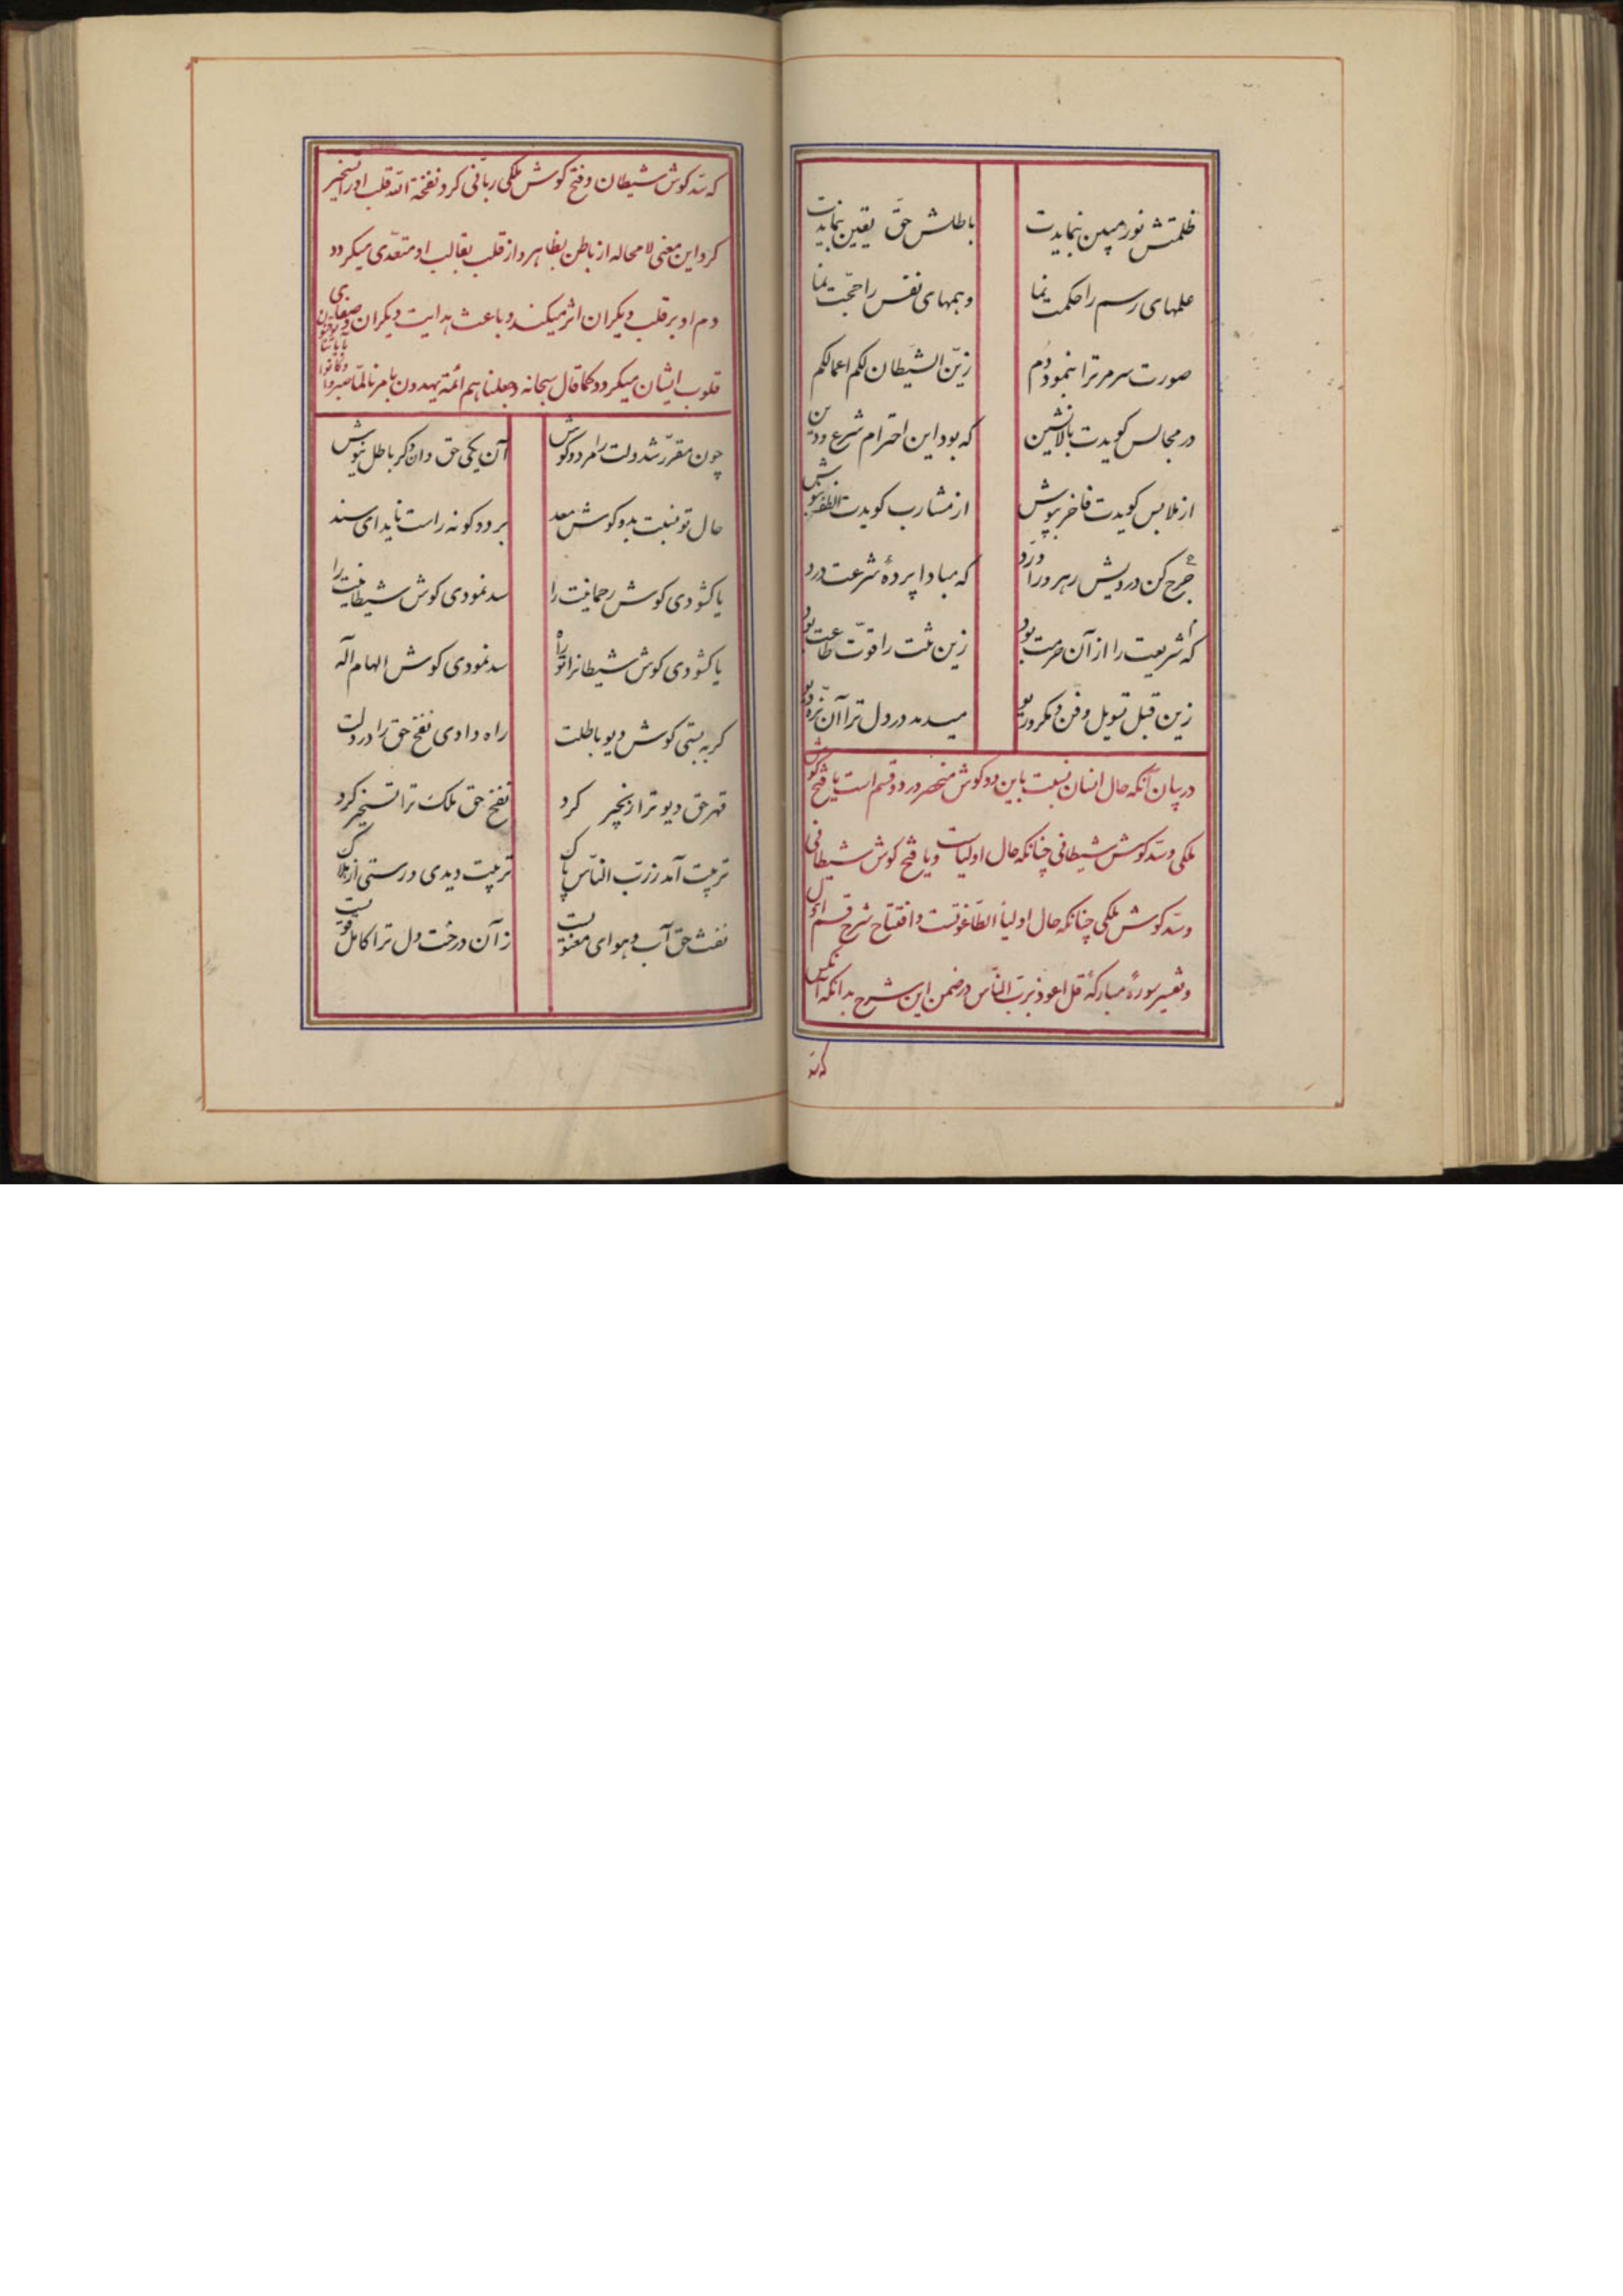 ظلمتش نور مبین بنمایدت باطلش حق یقین بنمایدت
علمهای رسم را حکمت نما وهمهای نفس را حجّت نما
صورت سرمر ترا بنمود دُم زیّن الشّیطان لکم اعمالکم
در مجالس گویدت بالانشین که بود این احترام شرع و دین
از ملابس گویدت فاخر بپوش از مشارب گویدت الطف بنوش
جرح کن درویش رهرو را و رد که مبادا پردهٔ شرعت درد
که شریعت را از آن حرمت بود زین ترا قوّت طاعت بود
زین قبل تسویل و فن و مکر و ریو میدمد در دل ترا آن نرّه دیو
در بیان آنکه حال انسان نسبت باین دو گوش منحصر در دو قسم است یا فتح گوش
ملکی و سدّ گوش شیطانی چنانکه حال اولیاست و یا فتح گوش شیطانی
و سدّ گوش ملکی چنانکه حال اولیاٰ الطّاغوتست و افتتاح شرح قسم اوّل
و تفسیر سورهٔ مبارکهٔ قل اعوذ بربّ النّاس در ضمن این شرح بدانکه آنکس
که سدّ
که سدّ گوش شیطان و فتح گوش ملکی ربّانی کرد نفخهٔ الله قلب او را تسخیر
کرد این معنی لامحاله از باطن بظاهر و از قلب بقالب او متعدّی میگردد
و دم او بر قلب دیگران اثر میکند و باعث هدایت دیگران و صفای
قلوب ایشان میگردد کما قال سبحانه و جعلنا هم ائمّة یهدون بامرنا لمّا صبروا
و کانوا بآیاتنا یوقنون
چون مقرّر شد دلت را مر دو گوش آن یکی حق دان دگر باطل نیوش
حال تو نسبت بدو گوش معد بر دو گونه راست ناید ای سند
یا گشودی گوش رحمانیت را سد نمودی گوش شیطانیت را
یا گشودی گوش شیطانرا تو راه سد نمودی گوش الهام آله
گر به بستی گوش دیو باطلت راه دادی نفخ حق را در دلت
قهر حق دیو ترا زنجیر کرد نفخ حق ملک ترا تسخیر کرد
تربیت آمد ز ربّ النّاس پاک تربیت دیدی و رستی از هلاک
نفث حق آب و هوای معنویست زآن درخت دل ترا کامل قویست